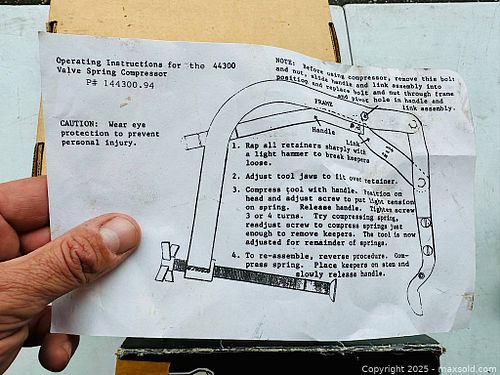 Operating Instructions for the 44300
Valve Spring Compressor
P# 144300.94
NOTE: Before using compressor, remove this bolt
and nut, slide handle and link assembly into
position and replace bolt and nut through frame
and pivot hole in handle and
link assembly.
CAUTION: Wear eye
protection to prevent
personal injury.
FRAME
Handle
Link
1. Rap all retainers sharply with
a light hammer to break keepers
loose.
2. Adjust tool jaws to fit over retainer.
3. Compress tool with handle. Position on
head and adjust screw to put light tension
on spring. Release handle. Tighten screw
3 or 4 turns. Try compressing spring,
readjust screw to compress springs just
enough to remove keepers. The tool is now
adjusted for remainder of springs.
4. To re-assemble, reverse procedure. Com-
press spring. Place keepers on stem and
slowly release handle.
Copyright 2025 - maxsold.com